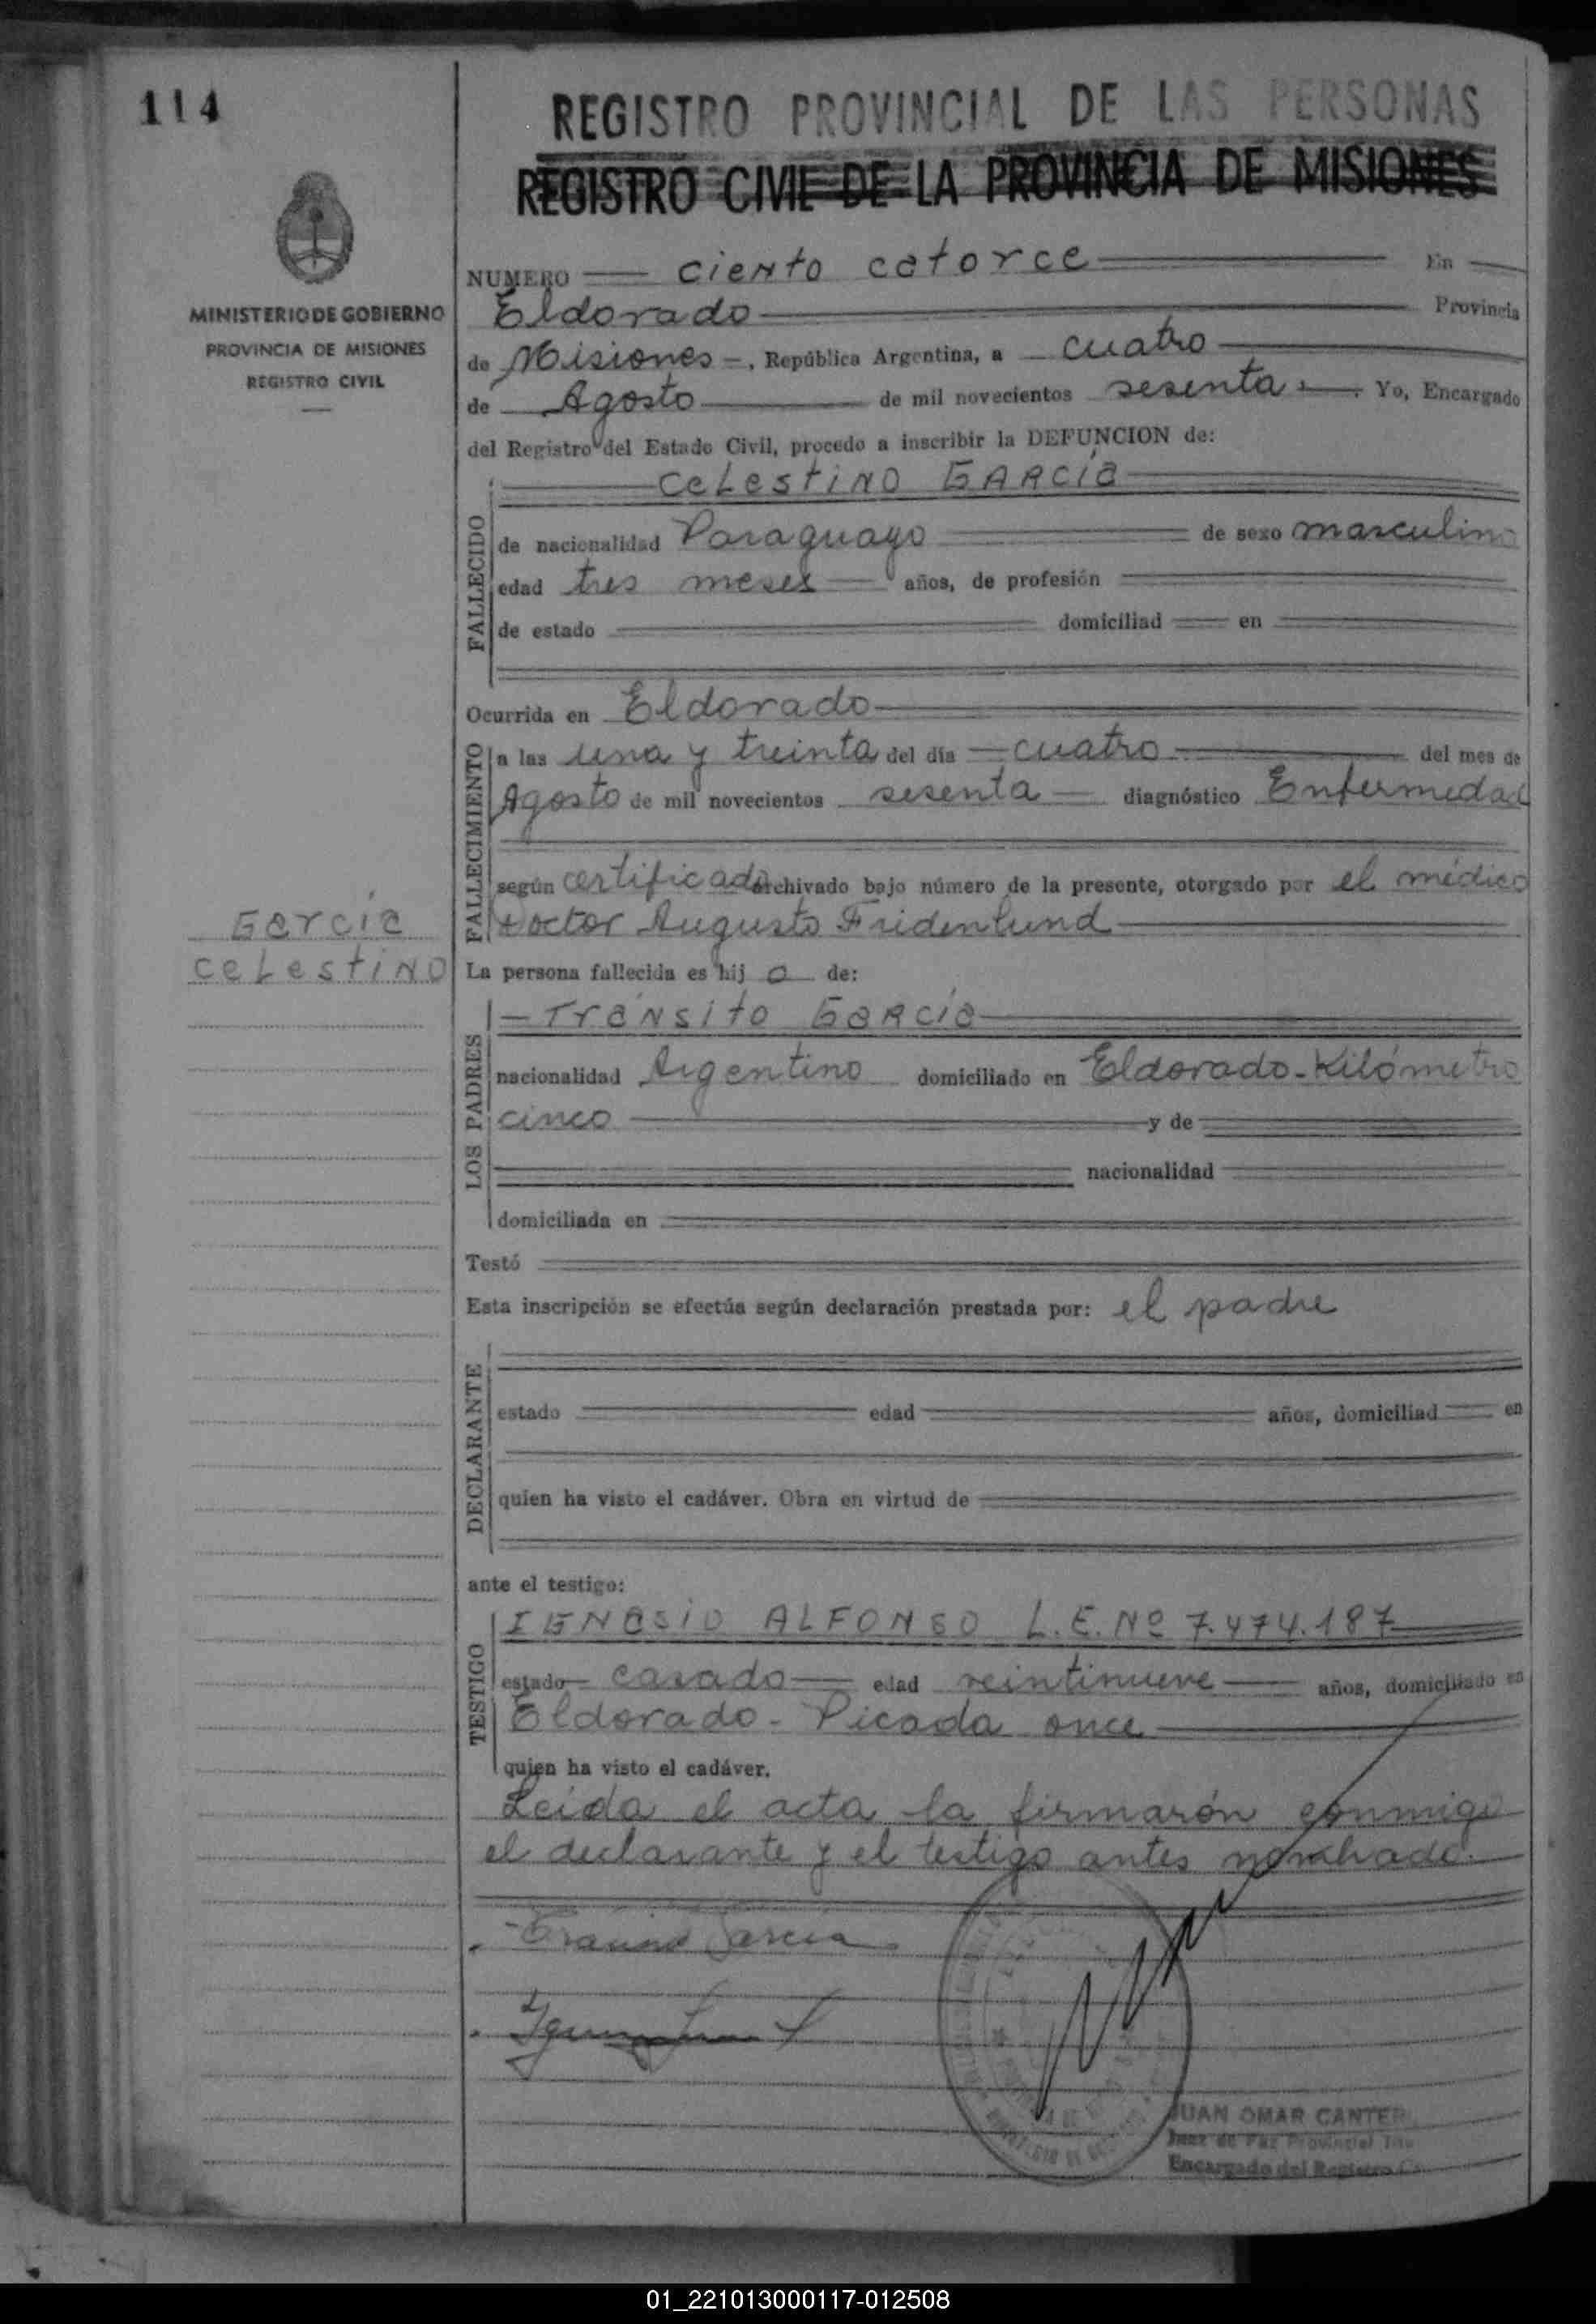 114
REGISTRO PROVINCIAL DE LAS PERSONAS
REGISTRO CIVIL DE LA PROVINCIA DE MISIONES
MINISTERIO DE GOBIERNO
PROVINCIA DE MISIONES
REGISTRO CIVIL
NUMERO ciento catorce En
Eldorado Provincia
de Misiones, República Argentina, a cuatro
de Agosto de mil novecientos sesenta. Yo, Encargado
del Registro del Estado Civil, procedo a inscribir la DEFUNCION de:
FALLECIDO
Celestino GARCÍA
de nacionalidad Paraguayo de sexo masculino
edad tres meses años, de profesión
de estado domiciliad en
Ocurrida en Eldorado
FALLECIMIENTO
a las una y treinta del día cuatro del mes de
Agosto de mil novecientos sesenta diagnóstico Enfermedad
según certificado archivado bajo número de la presente, otorgado por el médico
Doctor Augusto Fridenlund
García
Celestino
La persona fallecida es hij o de:
LOS PADRES
Tránsito García
nacionalidad Argentino domiciliado en Eldorado-Kilómetro
cinco y de
nacionalidad
domiciliada en
Testó
Esta inscripción se efectúa según declaración prestada por: el padre
DECLARANTE
estado edad años, domiciliad en
quien ha visto el cadáver. Obra en virtud de
ante el testigo:
TESTIGO
IGNASIO ALFONSO L.E. Nº 7.474.187
estado casado edad veintinueve años, domiciliado en
Eldorado - Picada once
quien ha visto el cadáver.
Leída el acta la firmarón conmigo
el declarante y el testigo antes nombrado.
García
JUAN OMAR CANTER
Juez de Paz Provincial
Encargado del Registro
01_221013000117-012508